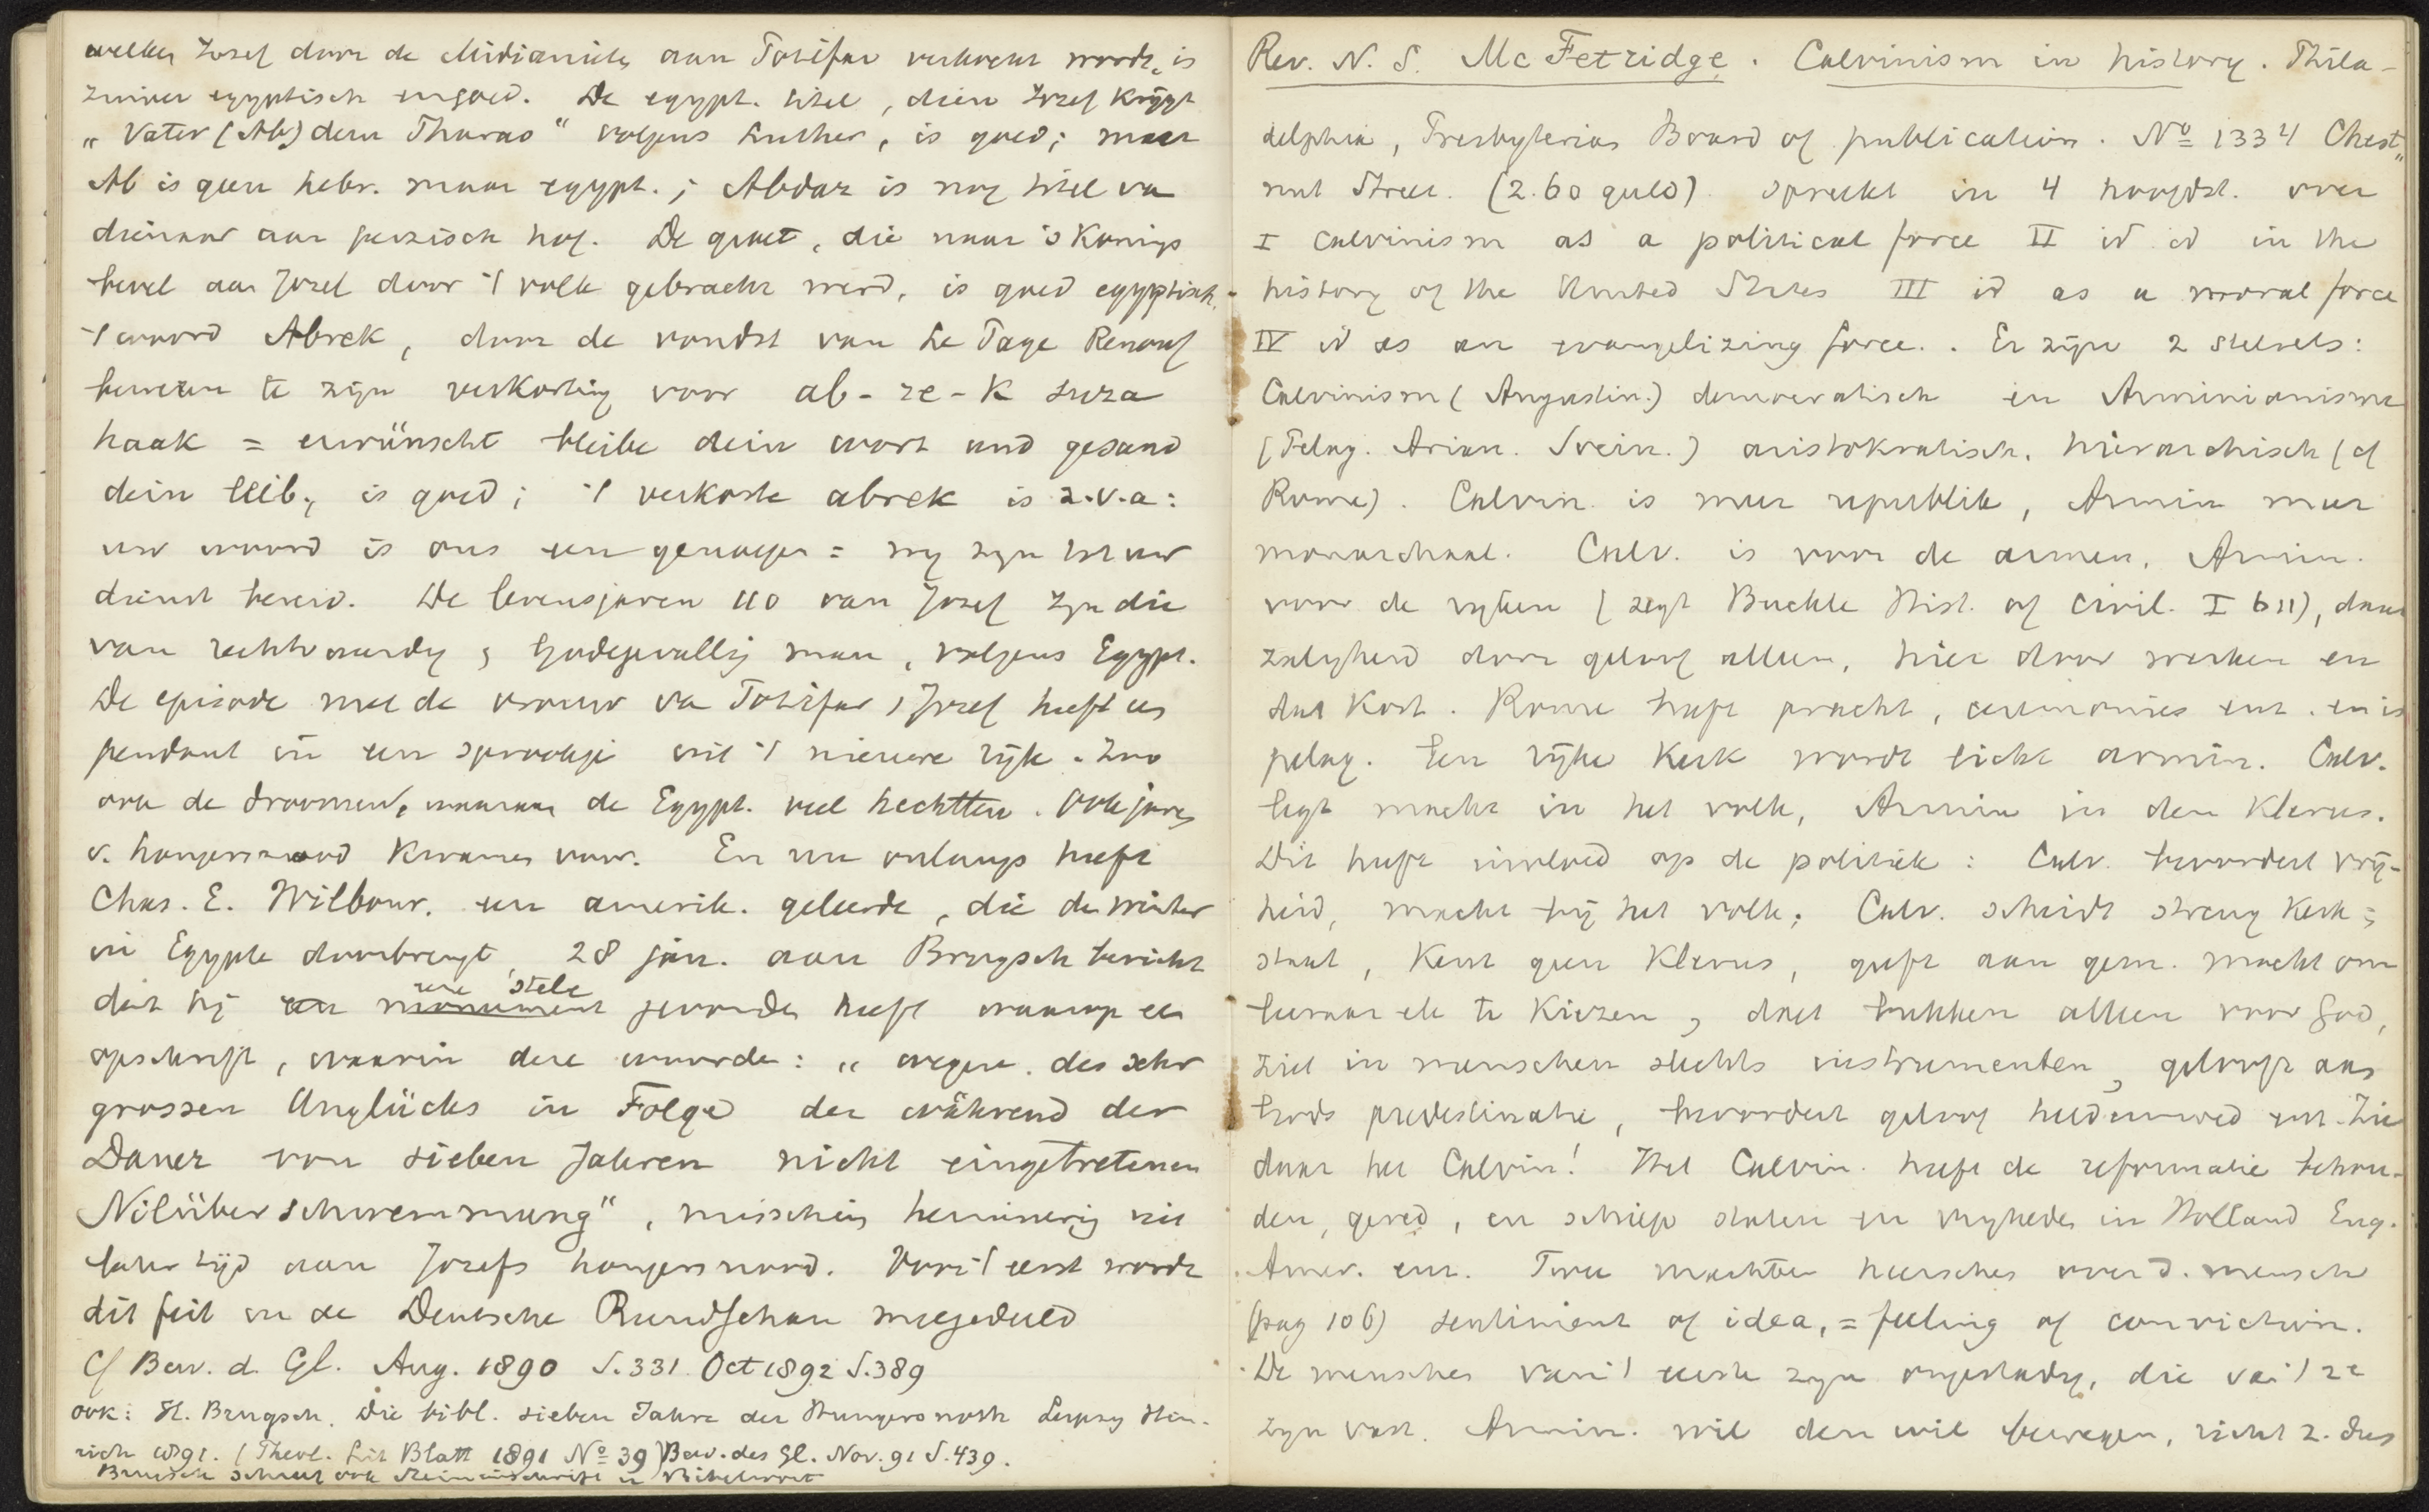 welken Jozef door de Midianites aan Potifar verkocht wordt, is
zuiver egyptisch en goed. De egypt. titel, dien Jozef krijgt
„Vater (Ab) dem Pharao" volgens Luther, is goed; maar
Ab is geen hebr. maar egypt.; Abdar is nog titel va
dienaar aan perzisch hof. De groet, die naar 's Konings
bevel aan Jozef door 't volk gebracht werd, is goed egyptisch.
't woord Abrek, door de vondst van Le Page Renouf
bewezen te zijn verkorting voor ab-re-k
haak = erwünscht bleibe dein wort und gesund
dein leib, is goed; 't verkorte abrek is z.v.a:
uw woord is ons een genoegen = wij zijn tot uw
dienst bereid. De levensjaren 110 van Jozef zyn die
van rechtvaardig & Godegevallig man, volgens Egypt.
De episode met de vrouw va Potifar & Jozef heeft een
pendant in een sprookje uit 't nieuwe rijk. Zoo
ook de droomen, waaraan de Egypt. veel hechtten. Ook jaren
v. hongersnood kwamen voor. En nu onlangs heeft
Chas. E. Wilbour. een amerik. geleerde, die de winter
in Egypte doorbrengt, 28 jan. aan Brugsch bericht
dat hij een monument eene stele gevonden heeft waarop een
opschrift, waarin deze woorden: „wegen des sehr
grossen Unglücks in Folge der während der
Dauer von sieben Jahren nicht eingetretenen
Nilüberschwemmung", misschien herinnering uit
later tijd aan Jozefs hongersnood. Voor 't eerst wordt
dit feit in de Deutsche Rundschau meegedeeld
Cf Bew. d. Gl. Aug. 1890 S.331. Oct 1892 S.389
ook: H. Brugsch. Die bibl. sieben Jahre der Hungersnoth Leipzig Hin-
rich 1891. (Theol. Lit Blatt 1891 Nº 39) Bew. des Gl. Nov. 91 S.439.
Brugsch schreef ook Steininschrift u Bibelwort
Rev. N. S. McFetridge. Calvinism in history. Phila-
delphia, Presbyterian Board of publication. Nº 1334 Chest„
nut Street. (2.60 guld) spreekt in 4 hoofdst. over
I Calvinism as a political force II id id in the
history of the United States III id as a moral force
IV id as an evangelizing force. . Er zijn 2 stelsels:
Calvinism (Augustin.) democratisch en Arminianisme
(Pelag. Arian. Socin.) aristokratisch, hierarchisch (cf
Rome). Calvin. is meer republik, Armin meer
monarchaal. Calv. is voor de armen, Armin.
voor de rijken (zegt Buckle Hist. of Civil. I 611), daar
zaligheid door geloof alleen, hier door werken en
dat kost. Rome heeft pracht, ceremonies enz. en is
pelag. Een rijke Kerk wordt licht armin. Calv.
legt macht in het volk, Armin in den Klerus.
Dit heeft invloed op de politiek: Calv. bevordert vrij-
heid, macht bij het volk; Calv. scheidt streng Kerk &
staat, Kent geen Klerus, geeft aan gem. macht om
leeraar etc te Kiezen, doet bukken alleen voor God,
ziet in menschen slechts instrumenten, gelooft aan
Gods predestinatie, bevordert geloof heldenmoed enz. Zie
daar het Calvin! Het Calvin. heeft de reformatie behou-
den, gered, en schiep staten en vrijheden in Holland Eng.
Amer. enz. Twee machten heerschen over d. mensch
(pag 106) sentiment of idea, = feeling of conviction.
De menschen van 't eerste zyn ongestadig, die va 't 2e
zyn vast. Armin. wil den wil bewegen, richt z. dus